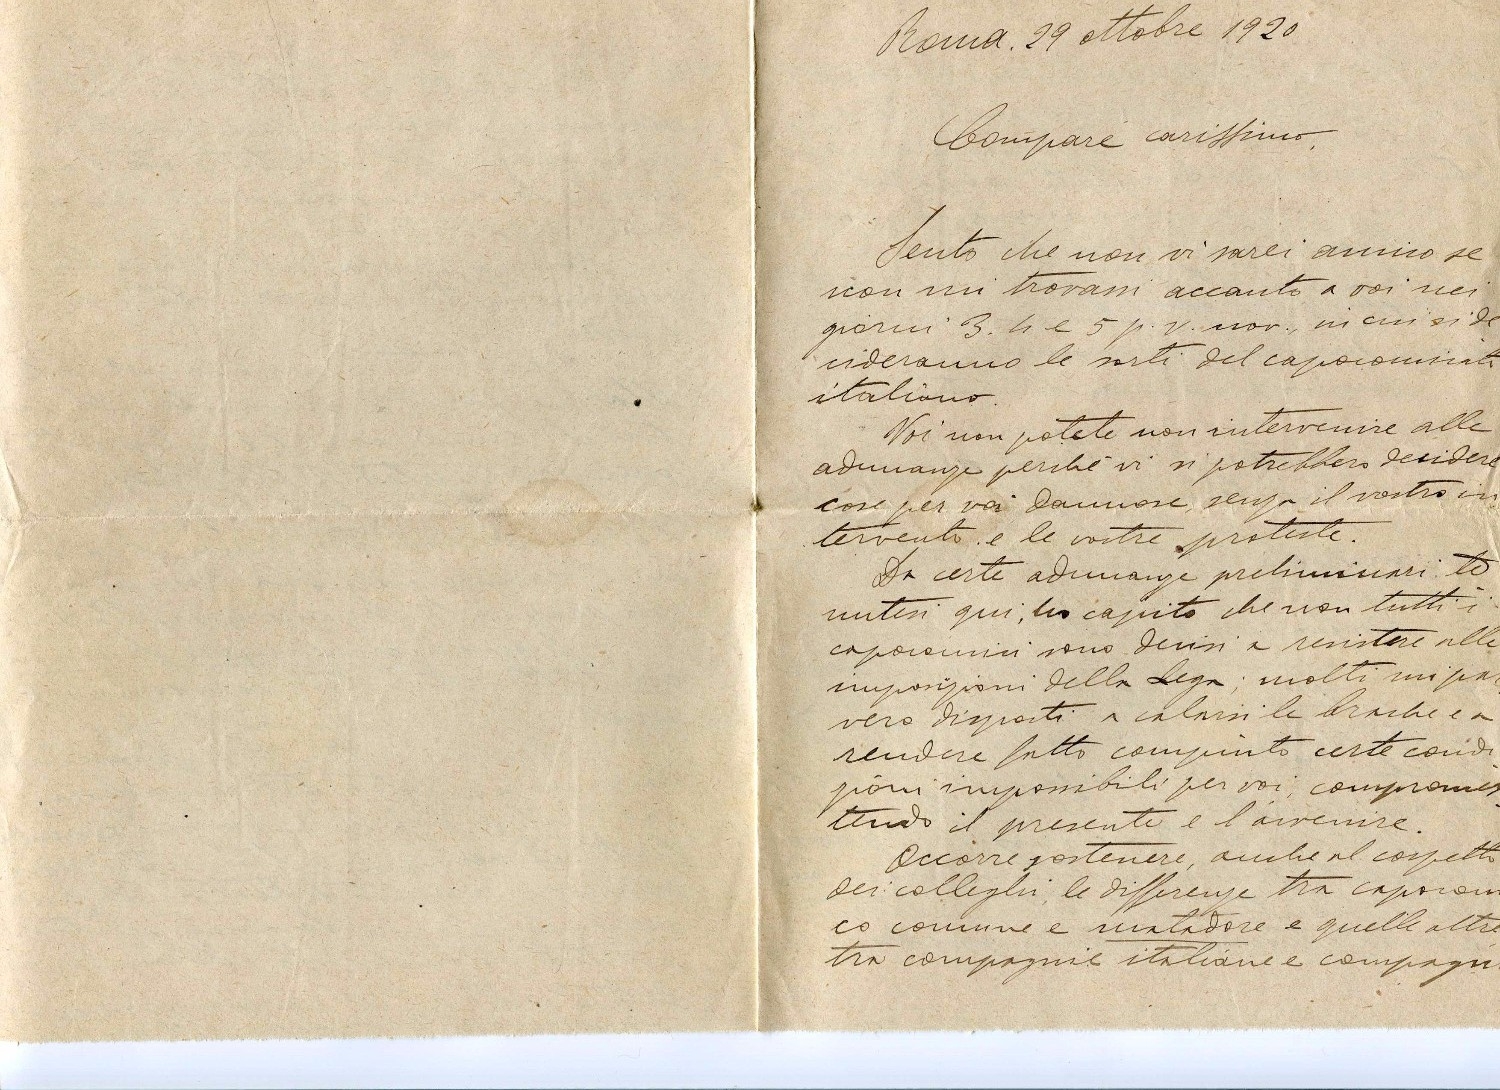 Roma. 29 ottobre 1920
Compare carissimo,
Sento che non vi sarei amico se
non mi trovassi accanto a voi nei
giorni 3. 4 e 5 p. v. nov., in cui si de
cideranno le sorti del capocomicato
italiano.
Voi non potete non intervenire alle
adunanze perchè vi si potrebbero decidere
cose per voi dannose, senza il vostro in
tervento e le vostre proteste.
Da certe adunanze preliminari te
nutesi qui, ho capito che non tutti i
capocomici sono decisi a resistere alle
imposizioni della Lega; molti mi par
vero disposti a calarsi le brache e a
rendere fatto compiuto certe condi
zioni impossibili per voi, compromet
tendo il presente e l'avvenire.
Occorre sostenere, anche al cospetto
dei colleghi, le differenze tra capocomi
co comune e mattadore e quelle altre
tra compagnie italiane e compagni